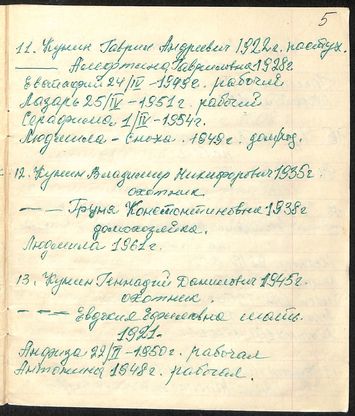 5
11. Кунин Гаврил Андреевич 1922г. пастух.
—— Алефтина Гавриловна 1928г.
Евстафий 24/IV - 1949г. рабочий
Лазарь 25/IV - 1951г. рабочий
Серафима 1/IV - 1954г.
Людмила - сноха. 1949г. домохоз.
12. Кунин Владимир Никифорович 1935г.
охотник
— — Груня Константиновна 1938г
домохозяйка.
Людмила 1961г.
13. Кунин Геннадий Данилович 1945г.
охотник.
— — — Евдокия Ефимовна мать
1921.
Анфиза 22/II - 1950г. рабочая
Антонина 1948г. рабочая.